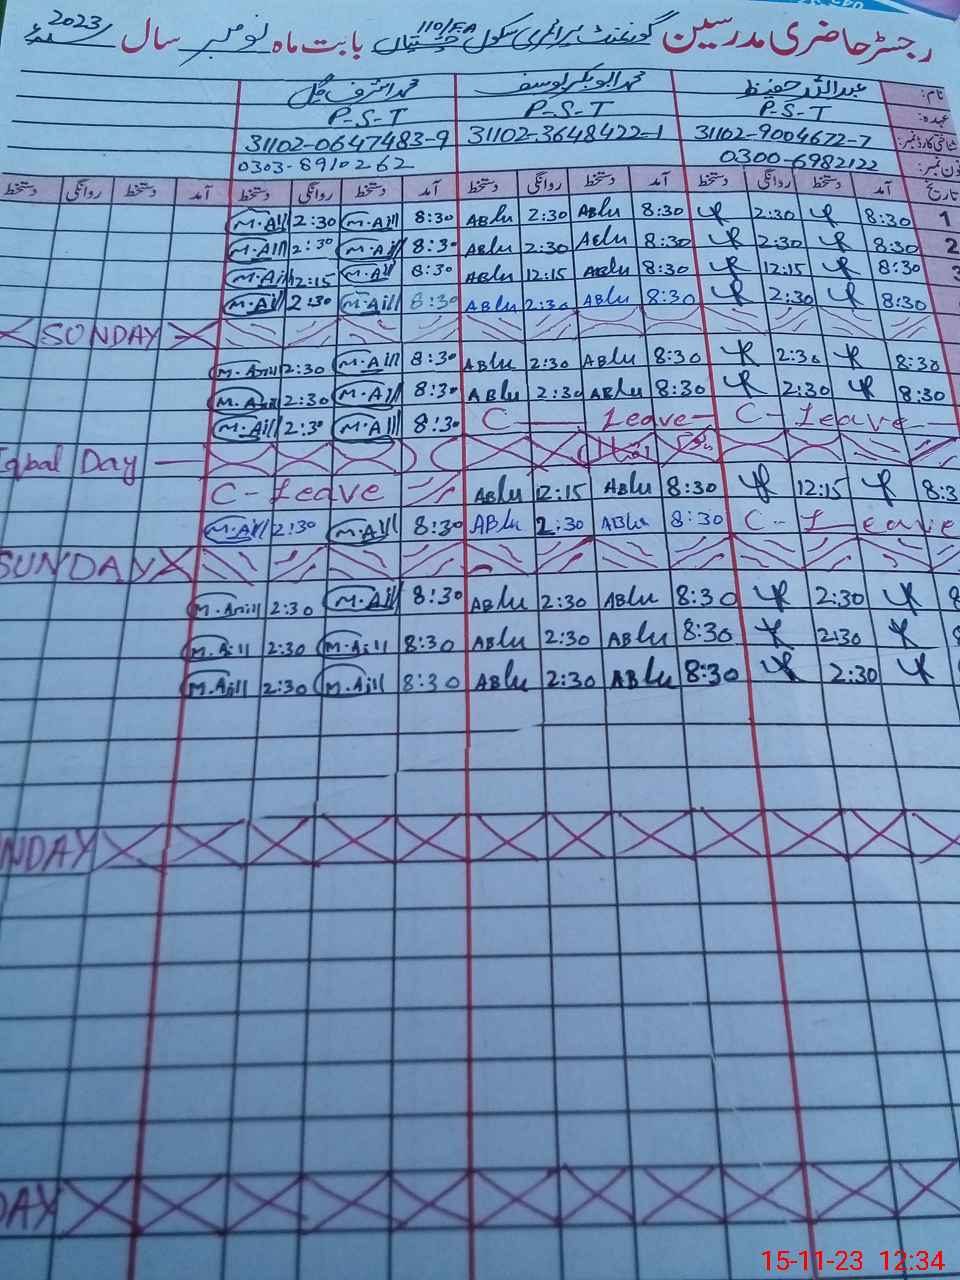 رجسٹر حاضری مدرسین گورنمنٹ پرائمری سکول 110/FA چشتیاں بابت ماہ نومبر سال 2023
نام: عبداللہ حفیظ محمد ابوبکر یوسف محمد اشرف گل
عہدہ: P-S-T P-S-T P-S-T
شناختی کارڈ نمبر: 31102-9004672-7 31102-3648422-1 31102-0647483-9
فون نمبر: 0300-6982122 0303-8910262
تاریخ آمد دستخط روانگی دستخط آمد دستخط روانگی دستخط آمد دستخط روانگی دستخط آمد دستخط روانگی دستخط
1 8:30 2:30 8:30 ABlu 2:30 ABlu 8:30 M.Aill 2:30 M.Aill
2 8:30 2:30 8:30 ABlu 2:30 ABlu 8:30 M.Aill 2:30 M.Aill
3 8:30 12:15 8:30 ABlu 12:15 ABlu 8:30 M.Aill 12:15 M.Aill
8:30 2:30 8:30 ABlu 2:30 ABlu 8:30 M.Aill 2:30 M.Aill
SUNDAY
8:30 2:30 8:30 ABlu 2:30 ABlu 8:30 M.Aill 2:30 M.Aill
8:30 2:30 8:30 ABlu 2:30 ABlu 8:30 M.Aill 2:30 M.Aill
C - Leave C Leave 8:30 M.Aill 2:30 M.Aill
Iqbal Day
8:3 12:15 8:30 ABlu 12:15 ABlu C - Leave
C - Leave 8:30 ABlu 2:30 ABlu 8:30 M.Aill 2:30 M.Aill
SUNDAY
8 2:30 8:30 ABlu 2:30 ABlu 8:30 M.Aill 2:30 M.Aill
8 2:30 8:30 ABlu 2:30 ABlu 8:30 M.Aill 2:30 M.Aill
8 2:30 8:30 ABlu 2:30 ABlu 8:30 M.Aill 2:30 M.Aill
NDAY
DAY
15-11-23 12:34